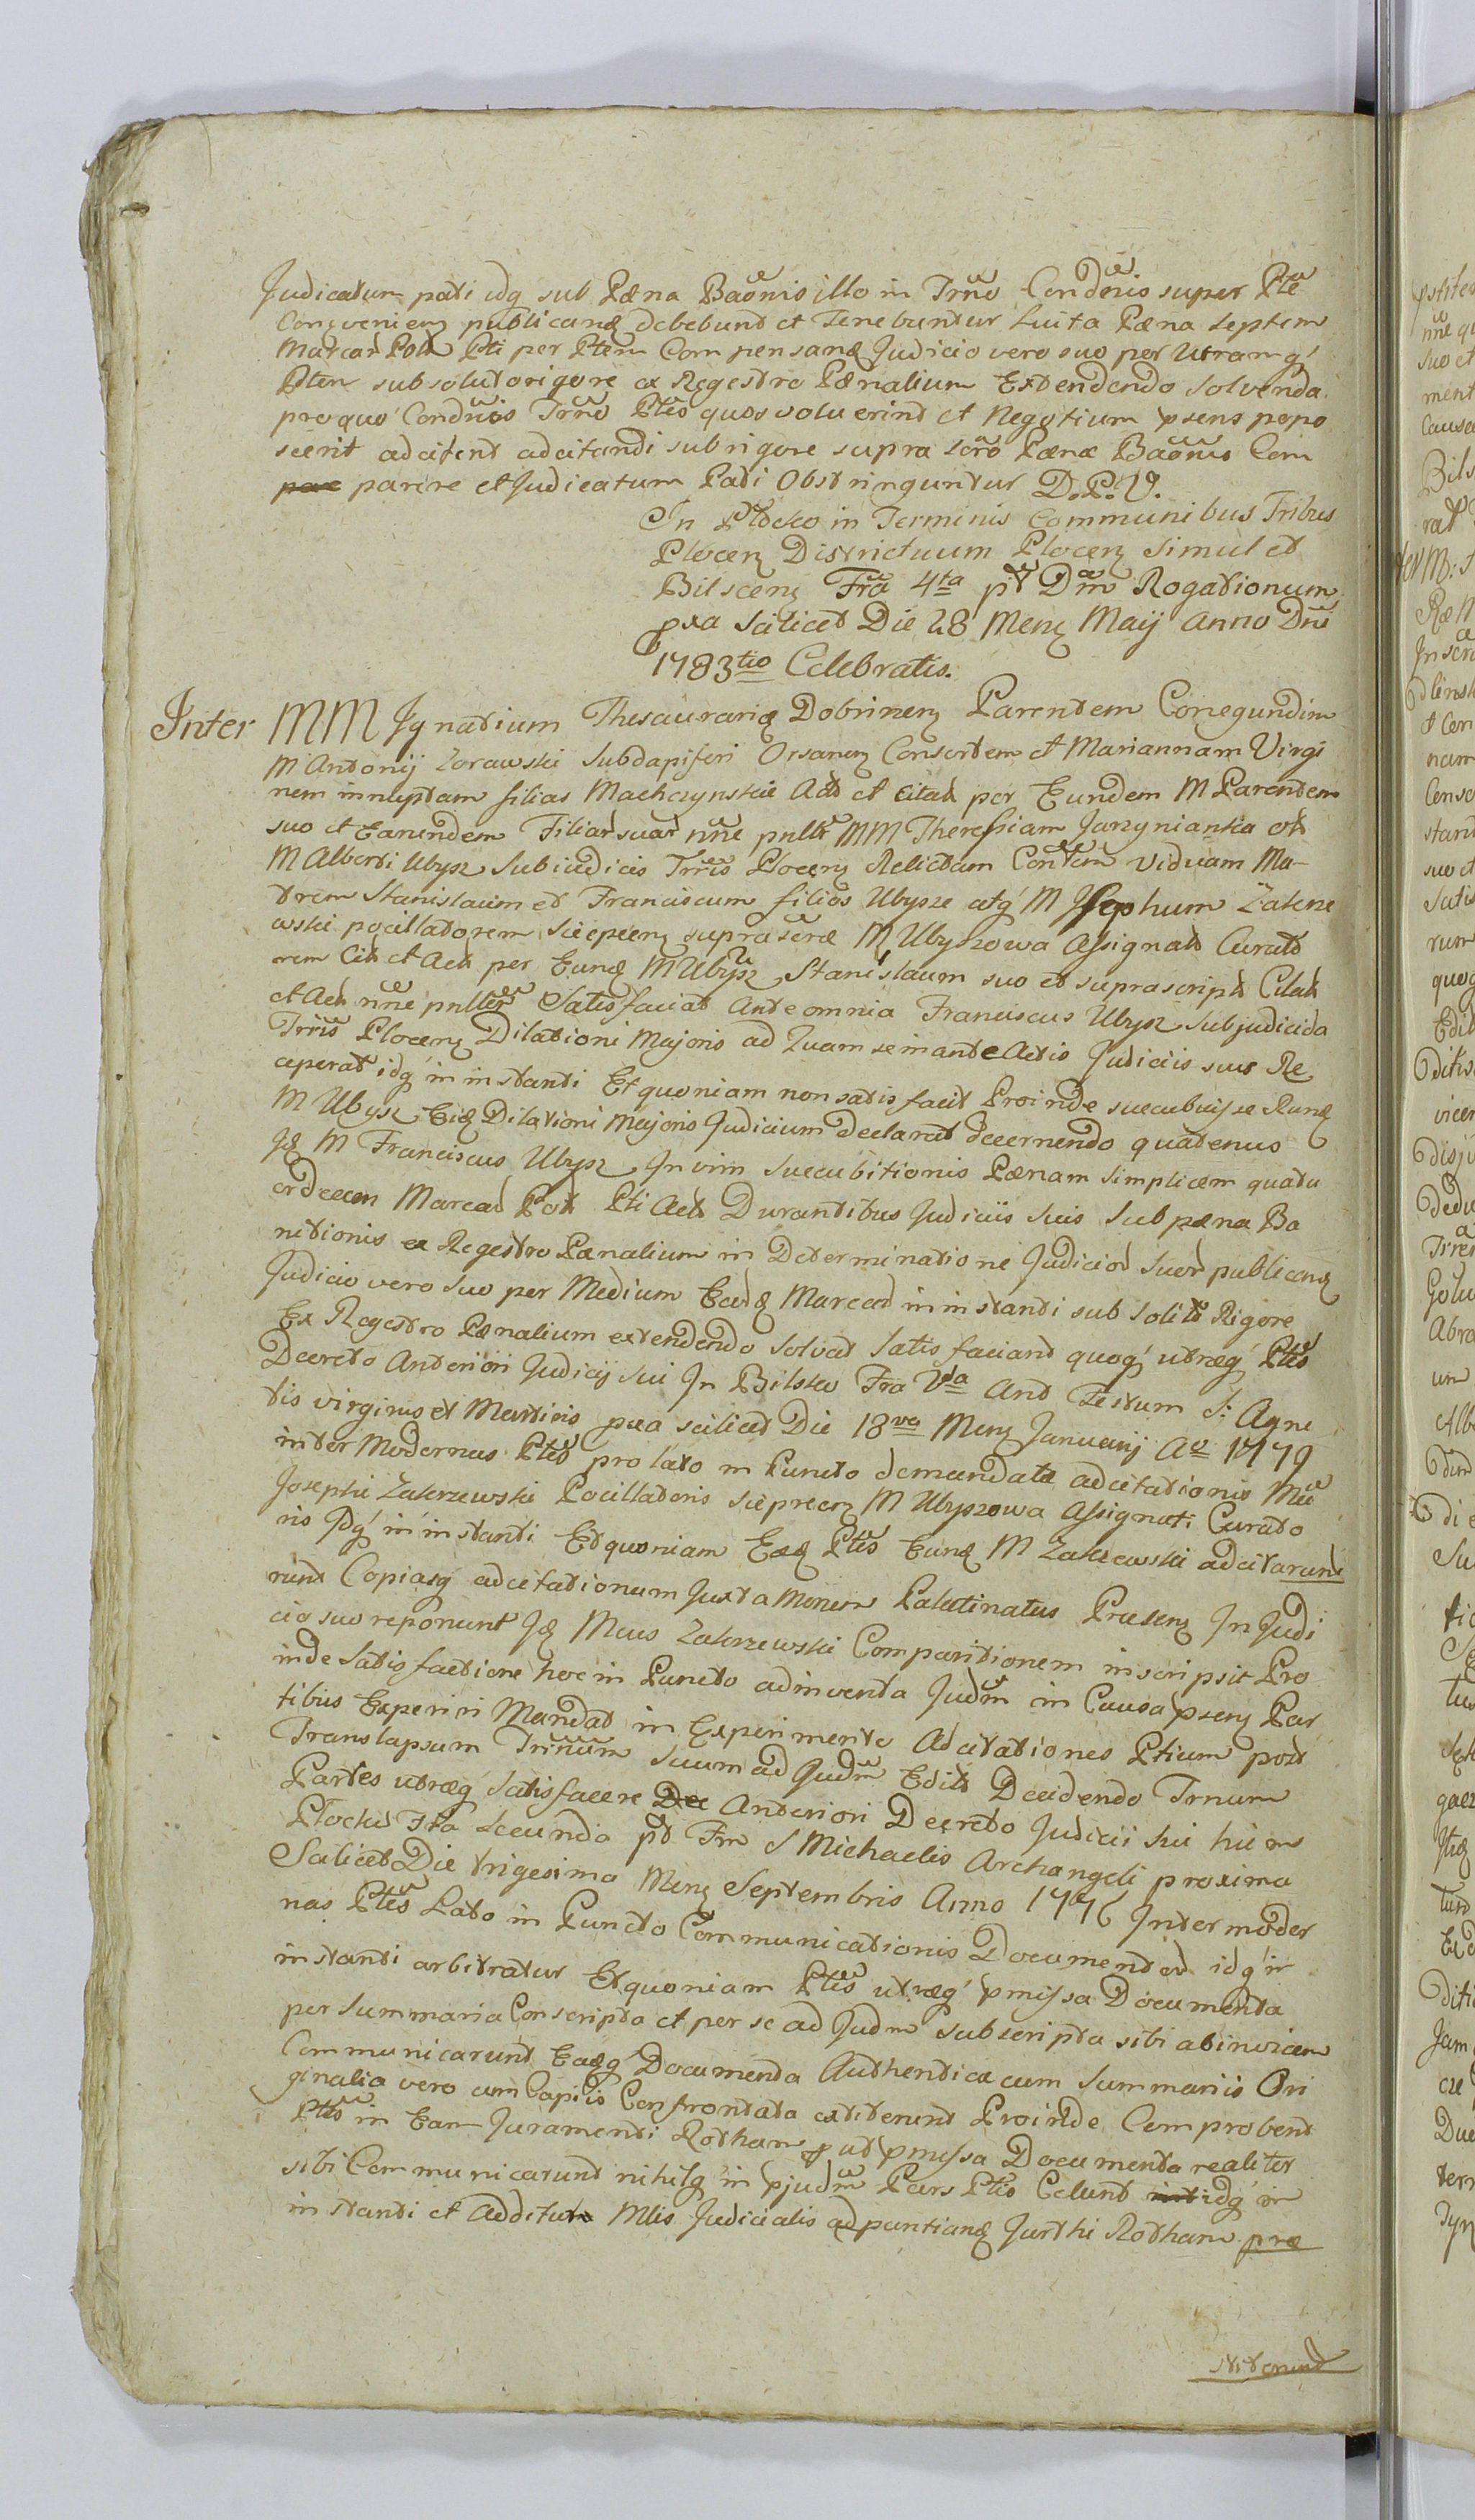 Judicatum pati idq sub Pæna Baõnis illo in Trno Condnis super Pte
Conqvenienz publicanq debebunt et tenebuntur Luita Pæna septem
Marcar Poll Pti per Ptem Compensanq Judicio vero suo per Utramq
Ptem sub soluto rigore ex Regestro Pænalium Extendendo solvenda
pro quo Condnis Trno Ptes quos voluerint et Negotium psens popo
scerit adcitent adcitandi sub rigore supra scro Pænæ Baõnis Com
parere et Judicatum Pati Obstringuntur D. P. V.
In Plocko in Terminis Communibus Tribus
Plocenz Districtuum Plocenz simul et
Bilscenz Fra 4ta pt Dm Rogationum
pxa scilicet Die 28 Menz Maij Anno Dni
1783tio Celebratis.
Inter MM Ignatium Thesaurariq Dobrinenz Parentem Conegundim
M Antonij Zorawski Subdapiferi Orsanenz Consortem et Mariannam Virgi
nem innuptam filias Machczynskie Act et Citat per Eundem M Parentem
suo et Earundem Filiar suar nne pnltr MM Theressiam Jarzynianka olt
M Alberti Ubysz Subiudicis Trris Plocenz Relictam Contem viduam Ma-
trem Stanislaum et Franciscum filios Ubysze atq M Josephum Zakrze
wski pocillatorem Sieprcenz supra scræ M Ubyszowa Assignat Curato
rem Cit et Act per Eunq M Ubysz Stanislaum suo et suprascript Citat
et Act nne pnlter Satisfaciat Ante omnia Franciscus Ubysz Subjudicida
Trris Plocenz Dilationi Majoris ad Quam se in ante Actis Judiciis suis Re
ceperat idq in instanti Et quoniam non satis facit Proinde succubuisse Eunq
M Ubysz Eiq Dilationi Majoris Judicium declarat decernendo quatenus
Iq M Franciscus Ubysz In vim Succubitionis Pænam simplicem quatu
ordecem Marcar Poll Pti Act Durantibus Judiciis Suis Sub pæna Ba
nitionis ex Regestro Pænalium in Determinatione Judicior Suor publicanq
Judicio vero Suo per Medium Earq Marcar in instanti sub Solito Rigore
Ex Regestro Pænalium extendendo Solvat Satis faciant quoq utræq Ptes
Decreto Anteriori Judicij Sui In Bilsko Fra 2da Ant Festum S: Agne
tis virginis et Martiris pxa scilicet Die 18va Menz Januarij Ao 1779
inter Modernas Ptes prolato in Puncto demandatæ adcitationis Mci
Josephi Zakrzewski Pocillatoris Sieprcenz M Ubyszowa Assignati Curato
ris Idq in instanti Et quoniam Eæq Ptes Eunq M Zakrzewski adcitarunt
runt Copiasq adcitationum Juxta Morem Palatinatus Præsenz In Judi
cio suo reponunt Iq Mcus Zakrzewski Comparitionem inscripsit Pro
inde Satisfactione hoc in Puncto adinventa Judm in Causa psenz Par
tibus Experiri Mandat in Experimento Adcitationes Ptium post
Translapsum Trnum Suum ad Judm Edit Decidendo Trnum
Partes utræq Satisfacere Anteriori Decreto Judicii Sui hic in
Plocko Fra Secunda pt Fm S Michaelis Archangeli proxima
Scilicet Die trigesima Menz Septembris Anno 1776 Inter moder
nas Ptes Lato in Puncto Communicationis Documentor idq in
instanti arbitratur Et quoniam Ptes utræq pmissa Documenta
per Summaria Conscripta et per se ad Judm Subscripta sibi abinvicem
Communicarunt Eaqq Documenta Authentica cum Summariis Ori
ginalia vero cum Copiis Confrontata extiterunt Proinde Comprobent
Ptes in Eam Juramenti Rotham qt pmissa Documenta realiter
sibi Communicarunt nihilq in pjudm Pars Ptis Celant idq in
instanti et Additur Mlis Judicialis adpuntianq Jurthi Rotham præ
stiterunt